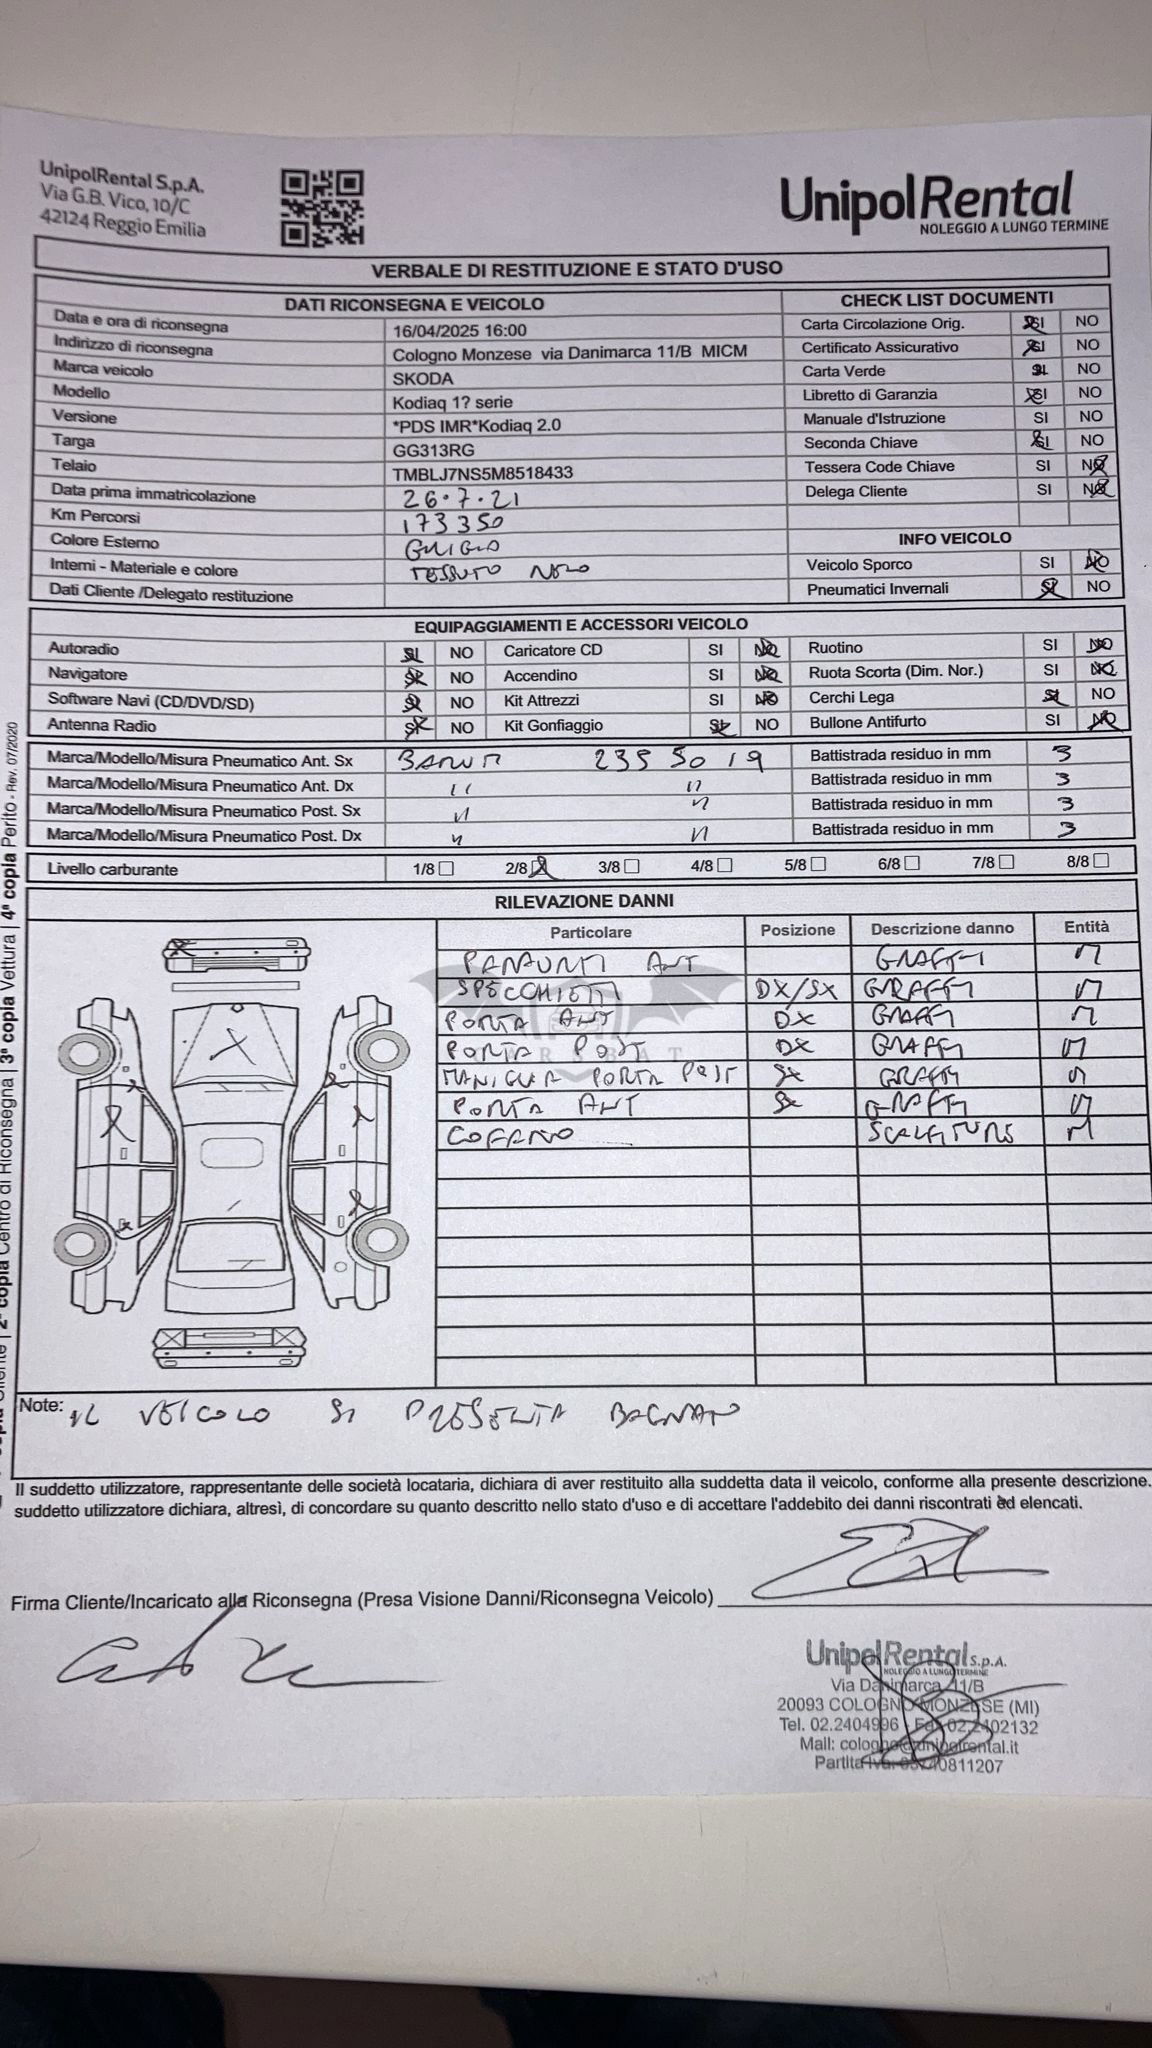 UnipolRental S.p.A.
Via G.B. Vico, 10/C
42124 Reggio Emilia
UnipolRental
NOLEGGIO A LUNGO TERMINE
VERBALE DI RESTITUZIONE E STATO D'USO
DATI RICONSEGNA E VEICOLO
Data e ora di riconsegna 16/04/2025 16:00
Indirizzo di riconsegna Cologno Monzese via Danimarca 11/B MICM
Marca veicolo SKODA
Modello Kodiaq 1? serie
Versione *PDS IMR*Kodiaq 2.0
Targa GG313RG
Telaio TMBLJ7NS5M8518433
Data prima immatricolazione 26.7.21
Km Percorsi 173350
Colore Esterno GRIGIO
Interni - Materiale e colore TESSUTO NERO
Dati Cliente /Delegato restituzione
CHECK LIST DOCUMENTI
Carta Circolazione Orig. SI NO
Certificato Assicurativo SI NO
Carta Verde SI NO
Libretto di Garanzia SI NO
Manuale d'Istruzione SI NO
Seconda Chiave SI NO
Tessera Code Chiave SI NO
Delega Cliente SI NO
INFO VEICOLO
Veicolo Sporco SI NO
Pneumatici Invernali SI NO
EQUIPAGGIAMENTI E ACCESSORI VEICOLO
Autoradio SI NO Caricatore CD SI NO Ruotino SI NO
Navigatore SI NO Accendino SI NO Ruota Scorta (Dim. Nor.) SI NO
Software Navi (CD/DVD/SD) SI NO Kit Attrezzi SI NO Cerchi Lega SI NO
Antenna Radio SI NO Kit Gonfiaggio SI NO Bullone Antifurto SI NO
Marca/Modello/Misura Pneumatico Ant. Sx BARUM 235 50 19 Battistrada residuo in mm 3
Marca/Modello/Misura Pneumatico Ant. Dx " " Battistrada residuo in mm 3
Marca/Modello/Misura Pneumatico Post. Sx " " Battistrada residuo in mm 3
Marca/Modello/Misura Pneumatico Post. Dx " " Battistrada residuo in mm 3
Livello carburante 1/8 2/8 3/8 4/8 5/8 6/8 7/8 8/8
RILEVAZIONE DANNI
Particolare Posizione Descrizione danno Entità
PARAURTI ANT GRAFFI M
SPECCHIETTI DX/SX GRAFFI M
PORTA ANT DX GRAFFI M
PORTA POST DX GRAFFI M
MANIGLIA PORTA POST SX GRAFFI M
PORTA ANT SX GRAFFI M
COFANO SCALFITURE M
Note: IL VEICOLO SI PRESENTA BAGNATO
Il suddetto utilizzatore, rappresentante delle società locataria, dichiara di aver restituito alla suddetta data il veicolo, conforme alla presente descrizione.
suddetto utilizzatore dichiara, altresì, di concordare su quanto descritto nello stato d'uso e di accettare l'addebito dei danni riscontrati ed elencati.
Firma Cliente/Incaricato alla Riconsegna (Presa Visione Danni/Riconsegna Veicolo)
UnipolRental S.p.A.
NOLEGGIO A LUNGO TERMINE
Via Danimarca 11/B
20093 COLOGNO MONZESE (MI)
Tel. 02.2404996 - Fax 02.2402132
Mail: cologno@unipolrental.it
Partita Iva:
2ª copia Centro di Riconsegna | 3ª copia Vettura | 4ª copia Perito - Rev. 07/2020